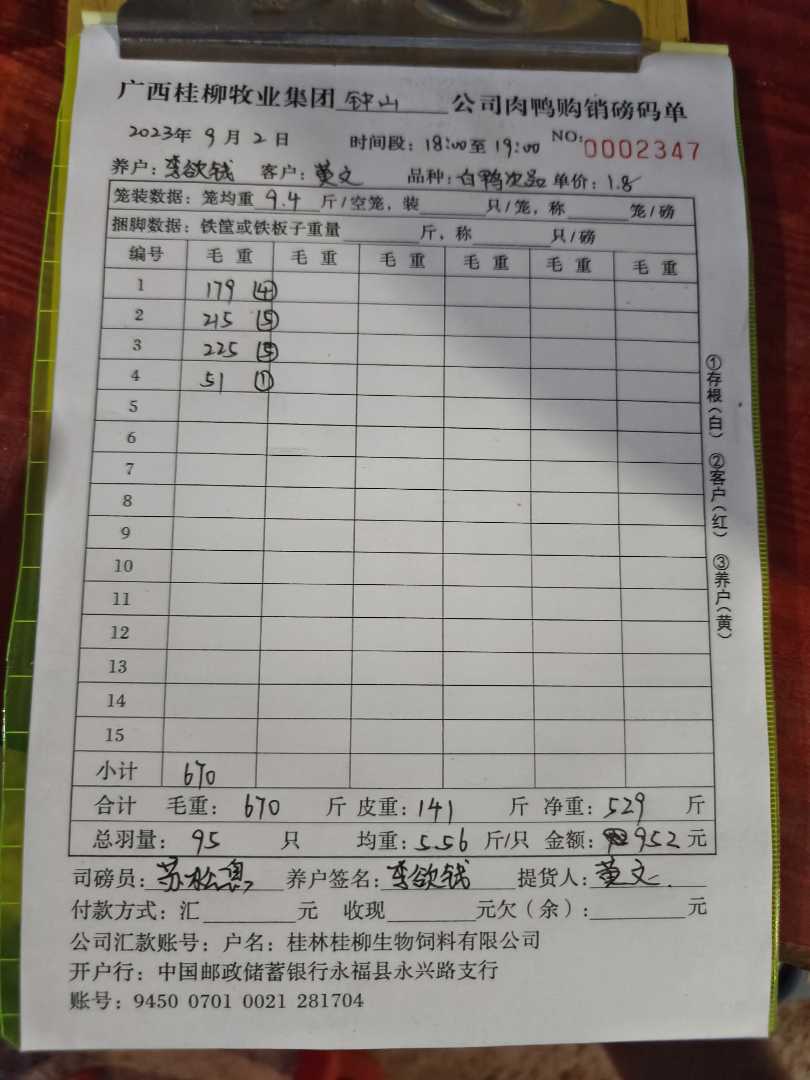 广西桂柳牧业集团 钟山 公司肉鸭购销磅码单
2023年 9 月 2 日 时间段: 18:00至 19:00 NO: 0002347
养户: 李欲钱 客户: 黄文 品种: 白鸭次品 单价: 1.8
笼装数据: 笼均重 9.4 斤/空笼, 装 只/笼, 称 笼/磅
捆脚数据: 铁筐或铁板子重量 斤, 称 只/磅
编号 毛 重 毛 重 毛 重 毛 重 毛 重 毛 重
1 179 ④
2 215 ⑤
3 225 ⑤
4 51 ①
5
6
7
8
9
10
11
12
13
14
15
小计 670
合计 毛重: 670 斤 皮重: 141 斤 净重: 529 斤
总羽量: 95 只 均重: 5.56 斤/只 金额: 952 元
司磅员: 苏松 养户签名: 李欲钱 提货人: 黄文.
付款方式: 汇 元 收现 元欠(余): 元
公司汇款账号: 户名: 桂林桂柳生物饲料有限公司
开户行: 中国邮政储蓄银行永福县永兴路支行
账号: 9450 0701 0021 281704
①存根(白) ②客户(红) ③养户(黄)